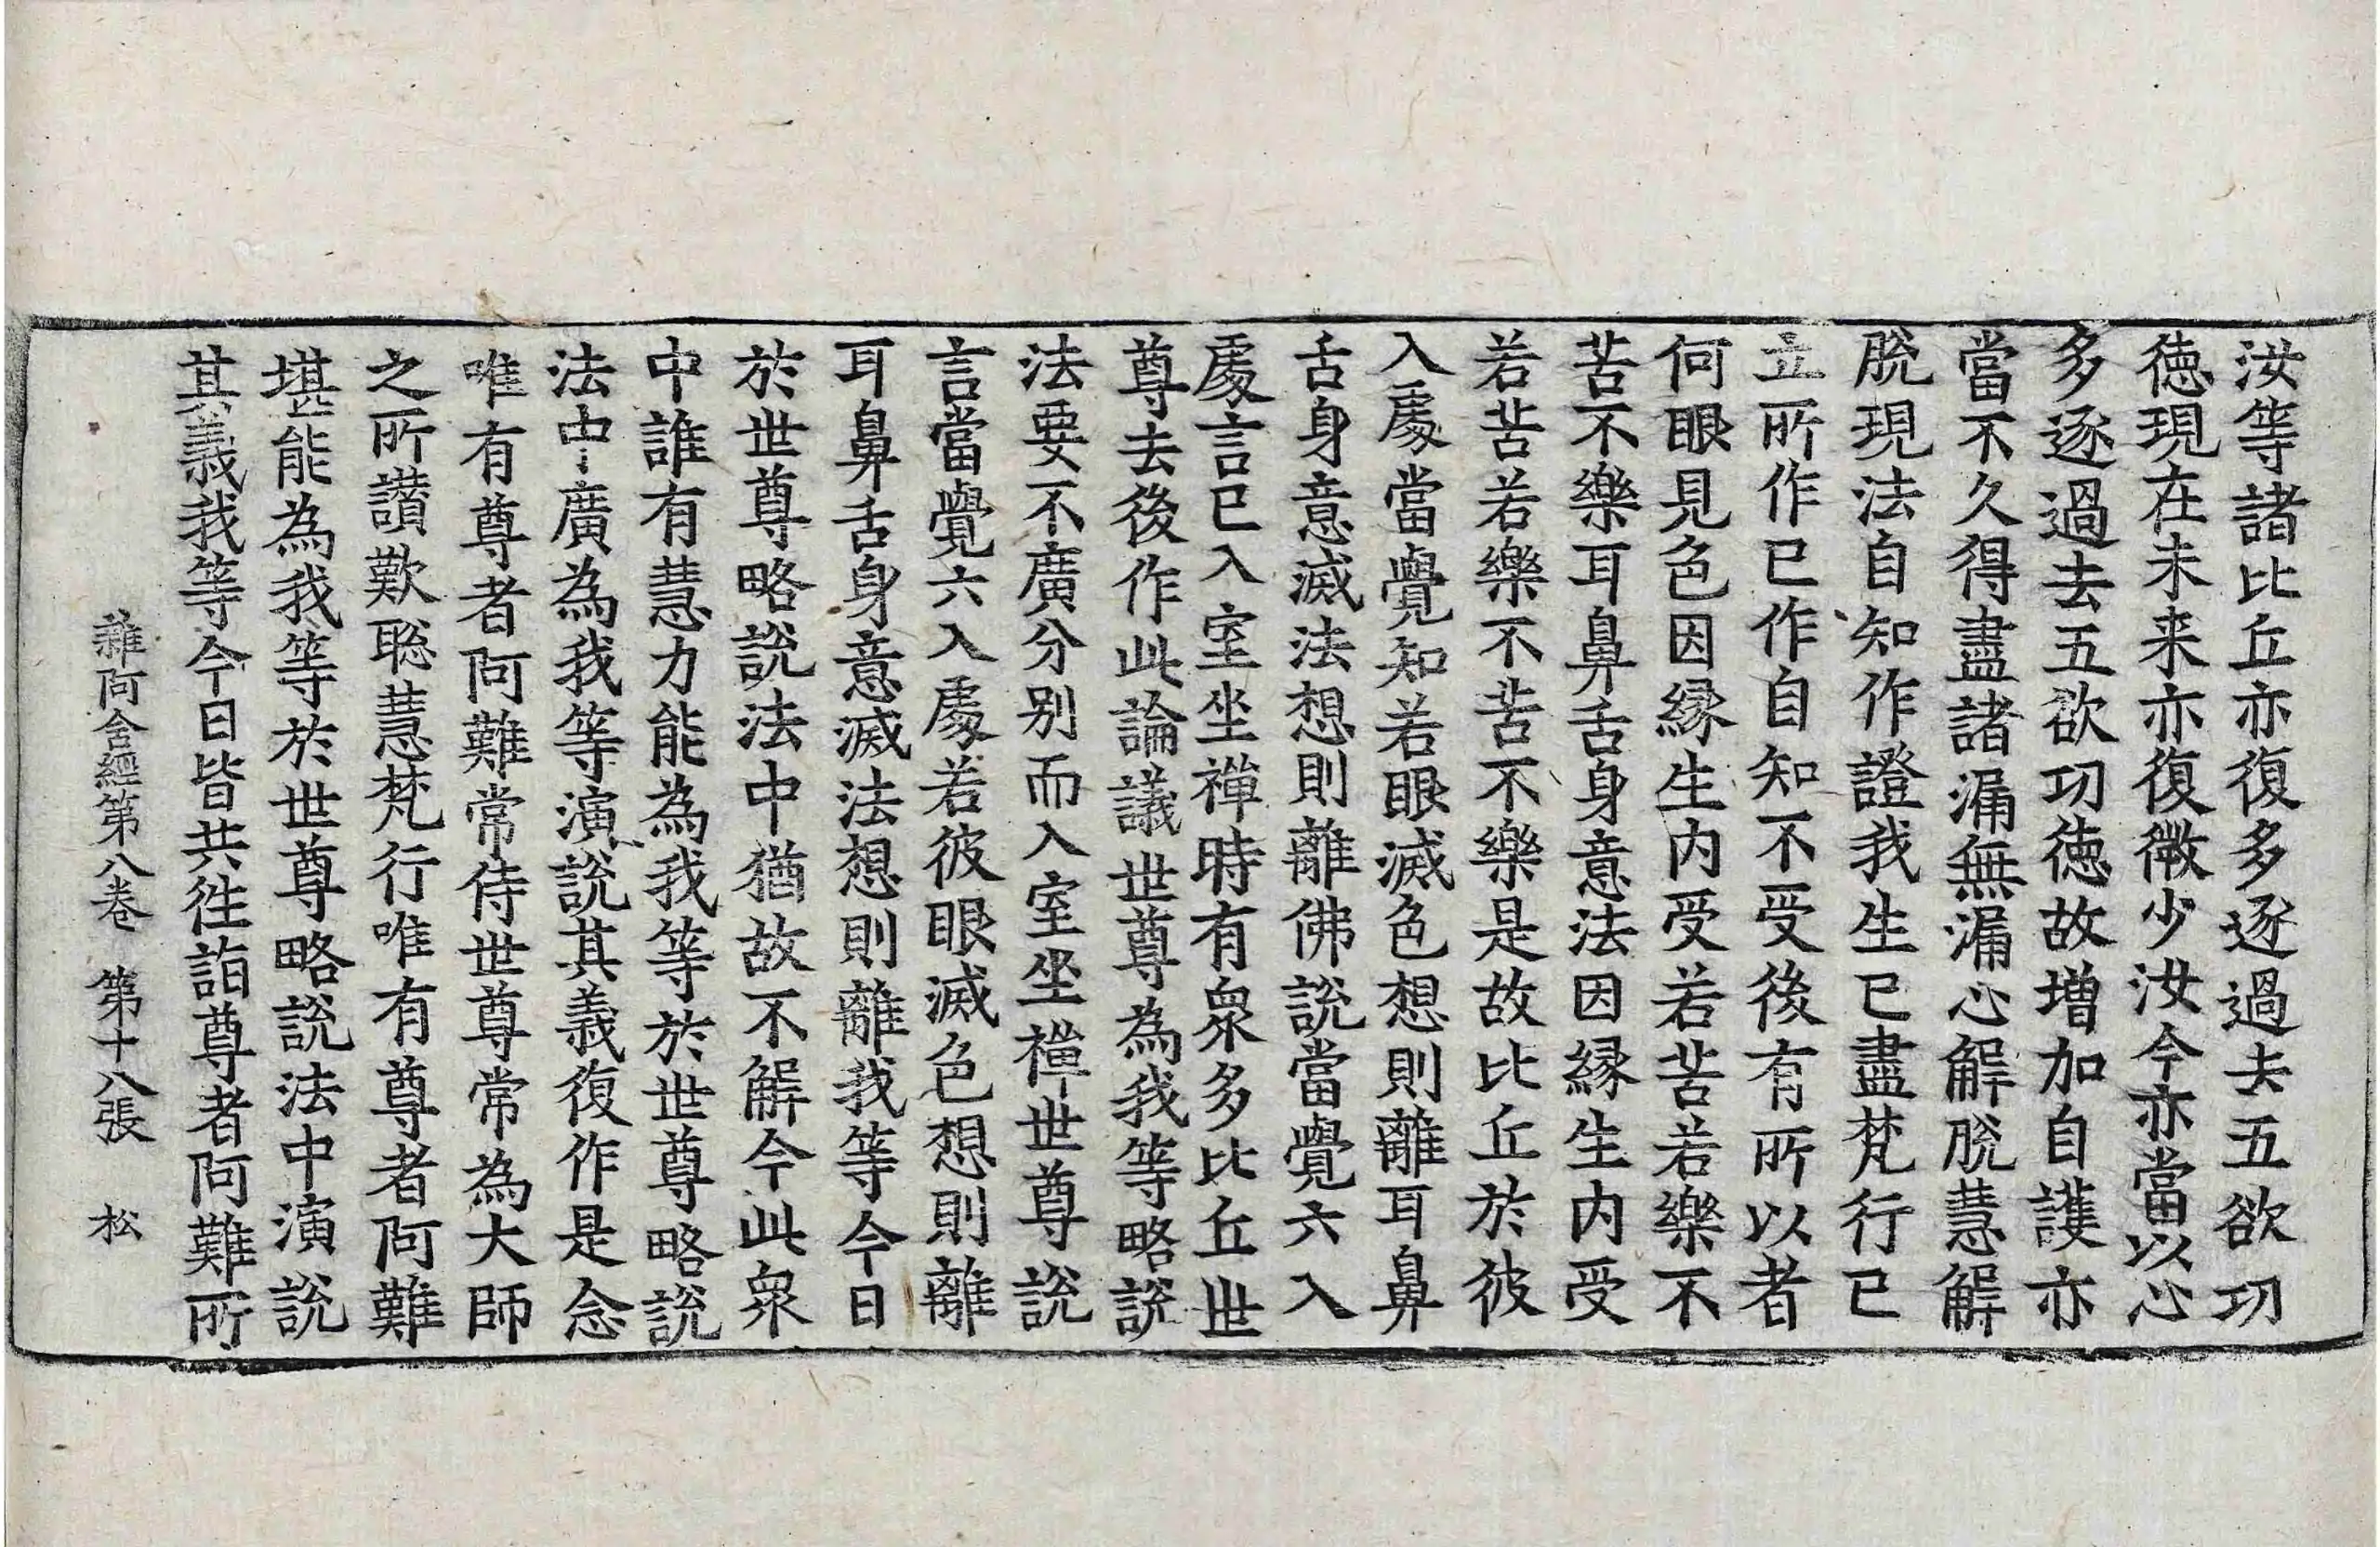 汝等諸比丘亦復多逐過去五欲功
德現在未来亦復微少汝今亦當以心
多逐過去五欲功德故增加自護亦
當不久得盡諸漏無漏心解脫慧解
脫現法自知作證我生已盡梵行已
立所作已作自知不受後有所以者
何眼見色因緣生內受若苦若樂不
苦不樂耳鼻舌身意法因緣生內受
若苦若樂不苦不樂是故比丘於彼
入處當覺知若眼滅色想則離耳鼻
舌身意滅法想則離佛說當覺六入
處言已入室坐禪時有衆多比丘世
尊去後作此論議世尊為我等略說
法要不廣分別而入室坐禪世尊說
言當覺六入處若彼眼滅色想則離
耳鼻舌身意滅法想則離我等今日
於世尊略說法中猶故不解今此衆
中誰有慧力能為我等於世尊略說
法中廣為我等演說其義復作是念
唯有尊者阿難常侍世尊常為大師
之所讚歎聡慧梵行唯有尊者阿難
堪能為我等於世尊略說法中演說
其義我等今日皆共往詣尊者阿難所
雜阿含經第八卷 第十八張 松